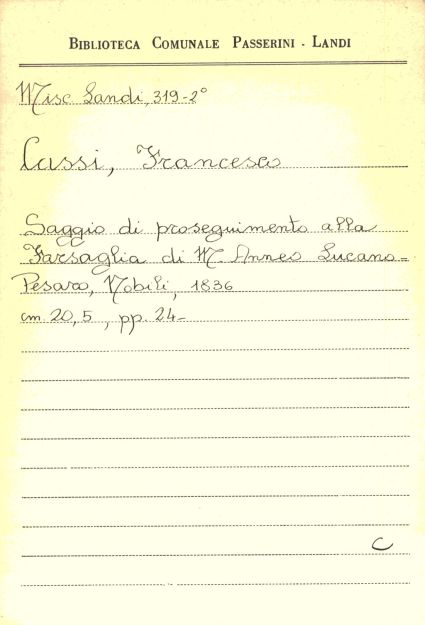 BIBLIOTECA COMUNALE PASSERINI - LANDI
Misc Landi, 319-2°
Cassi, Francesco
Saggio di proseguimento alla
Farsaglia di M. Anneo Lucano-
Pesaro, Nobili, 1836
cm. 20,5, pp. 24-
C